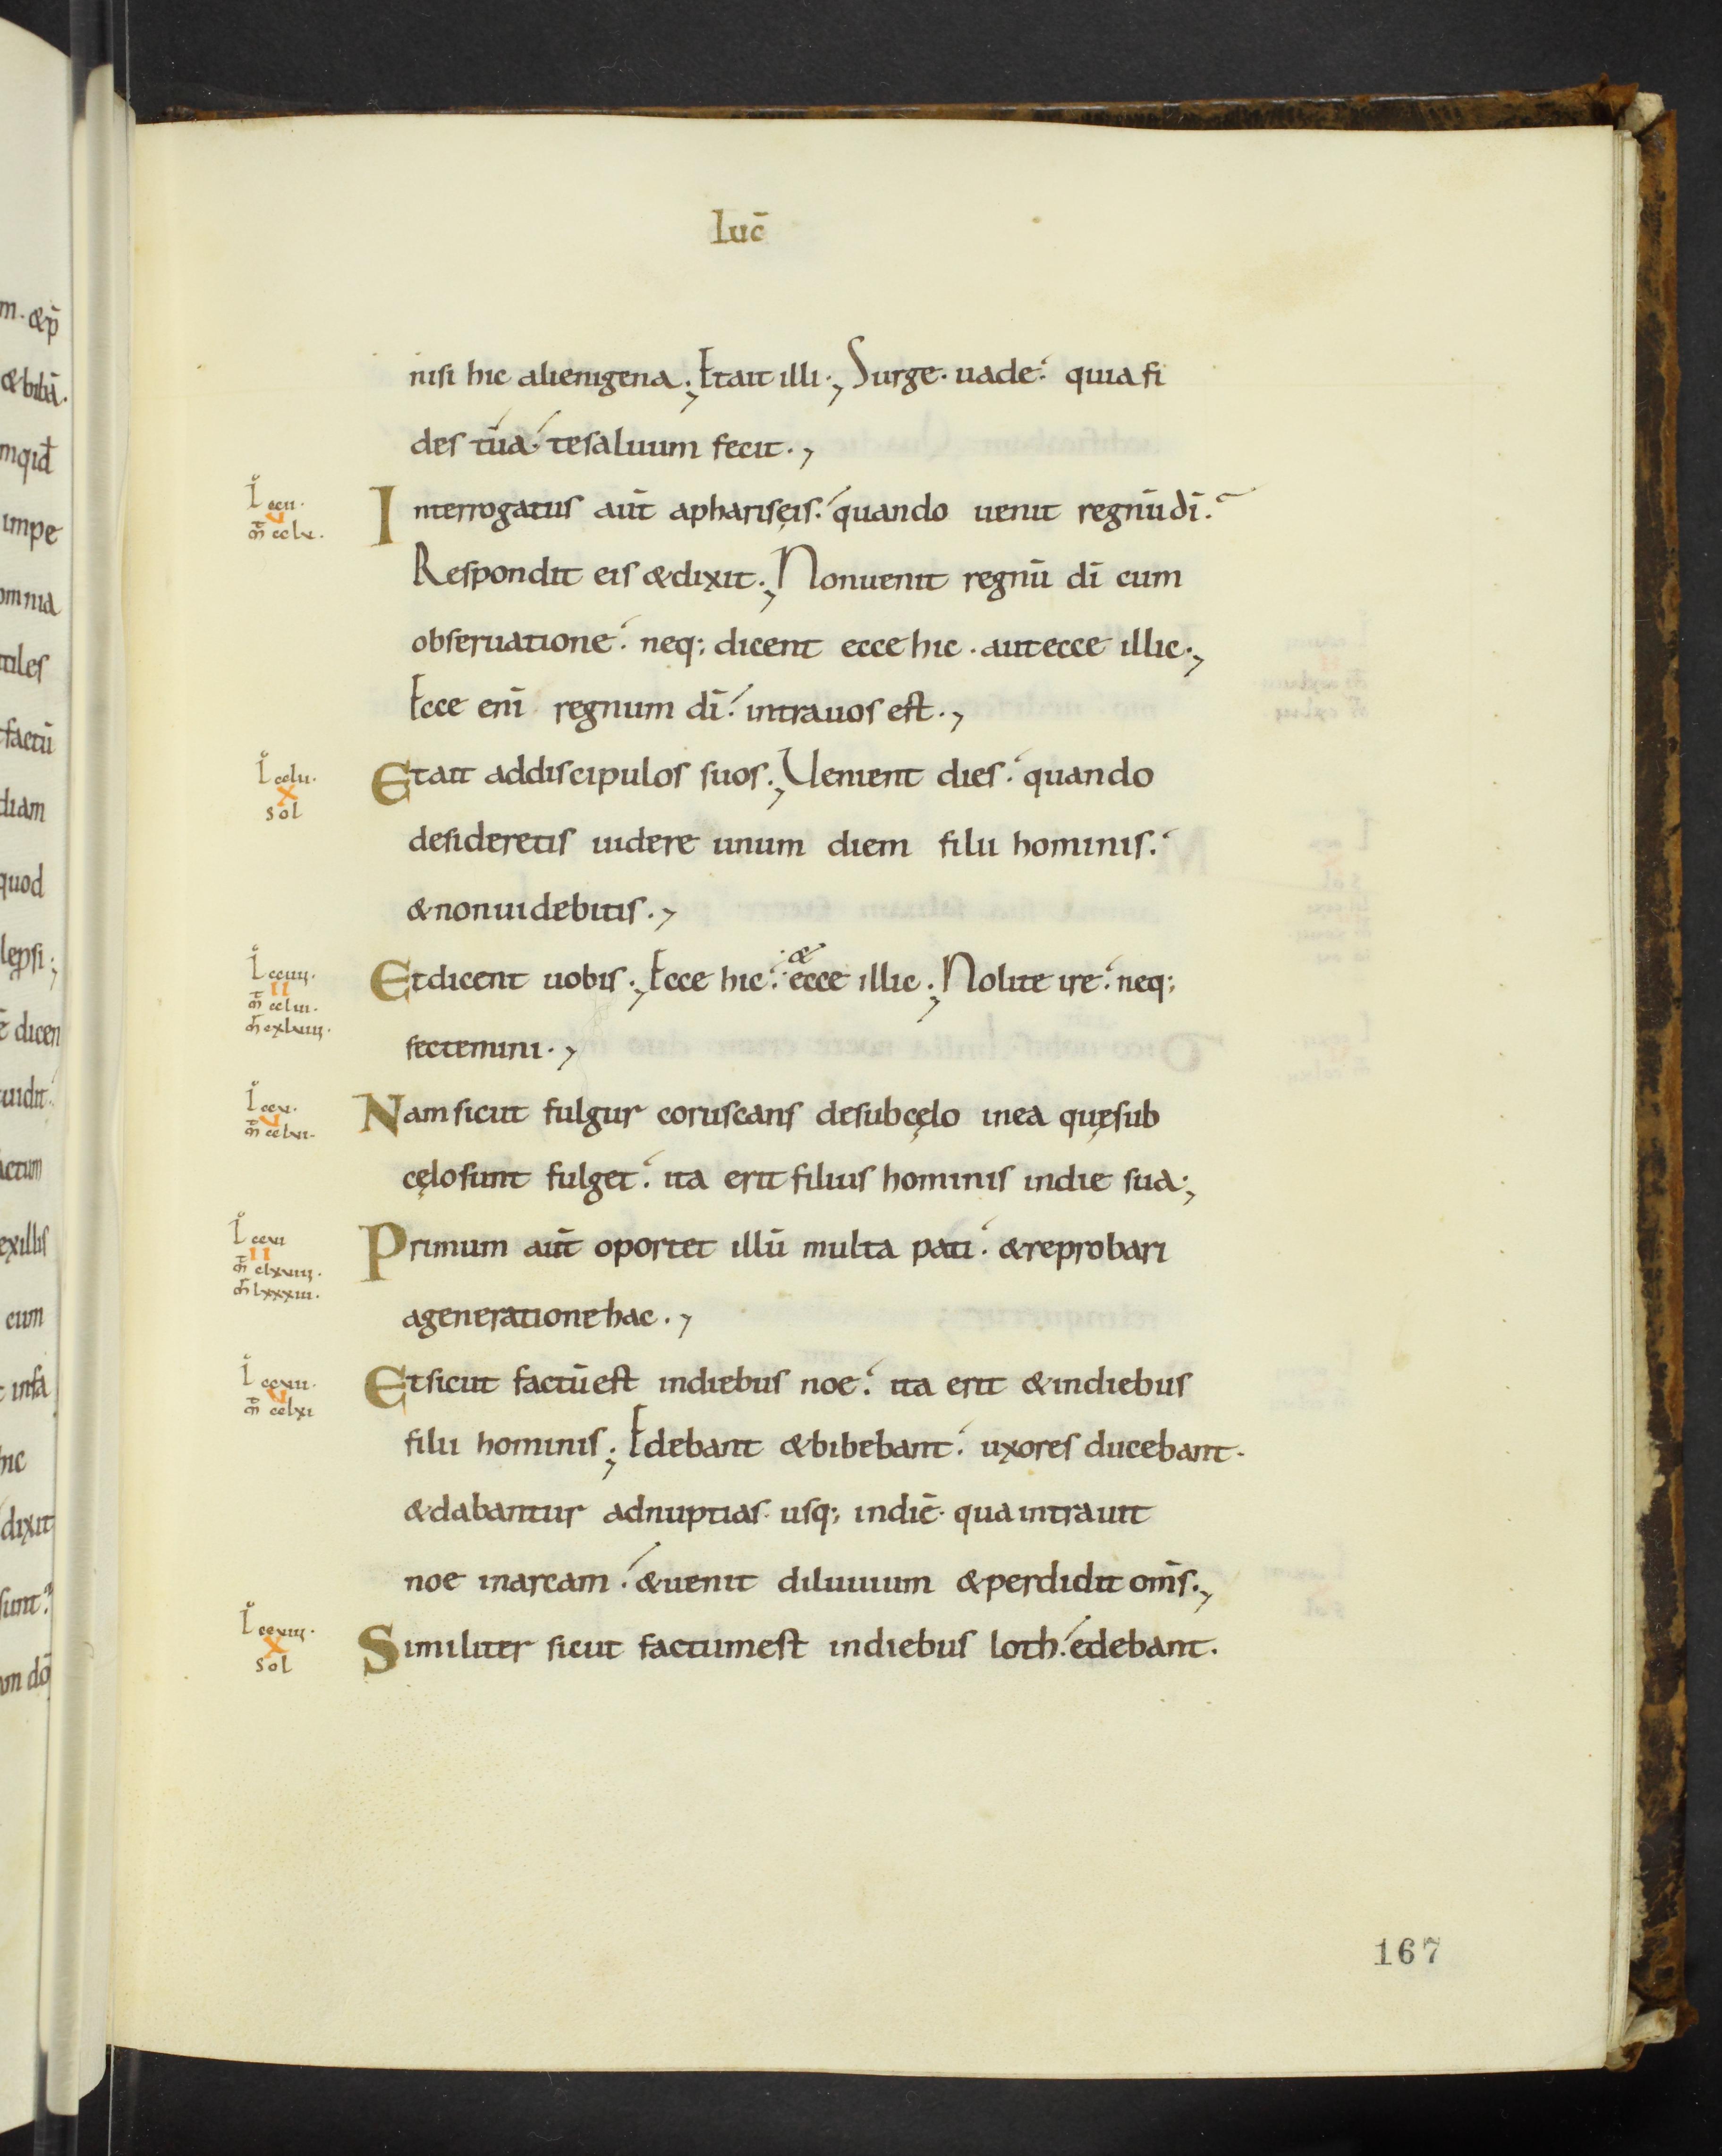 Luc̄
nisi hic alienigena., Et ait illi., Surge. uade. quia fi
des tua. te saluum fecit.,
L ccii.
v
m̄ cclx.
Interrogatus aūt a phariseis. quando uenit regnū dī.
Respondit eis & dixit., Non uenit regnū dī cum
obseruatione. neq; dicent ecce hic. aut ecce illic.,
Ecce enī regnum dī. intra uos est.,
L
x
sol
Et ait ad discipulos suos., Uenient dies. quando
desideretis uidere unum diem filii hominis.
& non uidebitis.,
II
Et dicent uobis., Ecce hic. & ecce illic., Nolite ire. neq;
sectemini.,
v
Nam sicut fulgur coruscans de sub cęlo in ea quę sub
cęlo sunt fulget. ita erit filius hominis in die sua.,
II
m̄ lxxxiii.
Primum aūt oportet illū multa pati. & reprobari
a generatione hac.,
v
m̄ cclxi
Et sicut factū est in diebus noe. ita erit & in diebus
filii hominis., Edebant & bibebant. uxores ducebant.
& dabantur ad nuptias. usq; in diē. qua intrauit
noe in arcam. & uenit diluuium & perdidit om̄s.,
x
sol
Similiter sicut factum est in diebus loth. edebant.
167